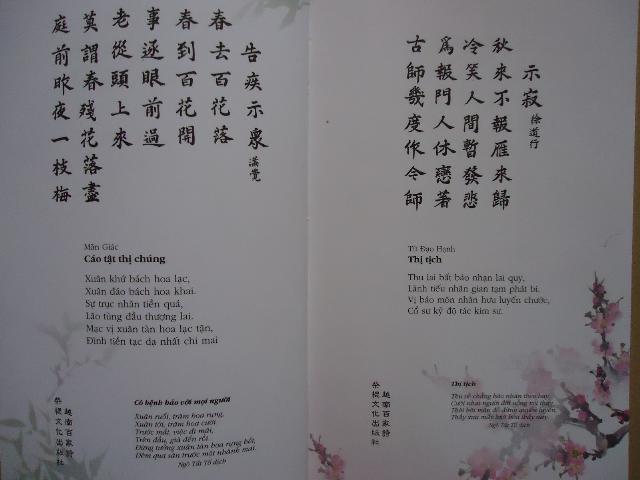 告疾示衆 滿覺
春去百花落
春到百花開
事逐眼前過
老從頭上來
莫謂春殘花落盡
庭前昨夜一枝梅
Mãn Giác
Cáo tật thị chúng
Xuân khứ bách hoa lạc,
Xuân đáo bách hoa khai.
Sự trục nhãn tiền quá,
Lão tùng đầu thượng lai.
Mạc vị xuân tàn hoa lạc tận,
Đình tiền tạc dạ nhất chi mai
Có bệnh bảo với mọi người
Xuân ruổi, trăm hoa rụng,
Xuân tới, trăm hoa cười
Trước mắt, việc đi mãi,
Trên đầu, già đến rồi
Đừng tưởng xuân tàn hoa rụng hết,
Đêm qua sân trước một nhành mai.
Ngô Tất Tố dịch
越南百家詩
榮根文化出版社
示寂 徐道行
秋來不報雁來歸
冷笑人間暫發悲
為報門人休戀著
古師幾度作今師
Từ Đạo Hạnh
Thị tịch
Thu lai bất báo nhạn lai quy,
Lãnh tiếu nhân gian tạm phát bi.
Vị báo môn nhân hưu luyến chước,
Cổ sư kỷ độ tác kim sư.
Thị tịch
Thu về chẳng báo nhạn theo bay,
Cười nhạt người đời uổng xót thay,
Thôi hỡi môn đồ đừng quyến luyến,
Thầy xưa mấy lượt hóa thầy nay.
Ngô Tất Tố dịch
越南百家詩
榮根文化出版社